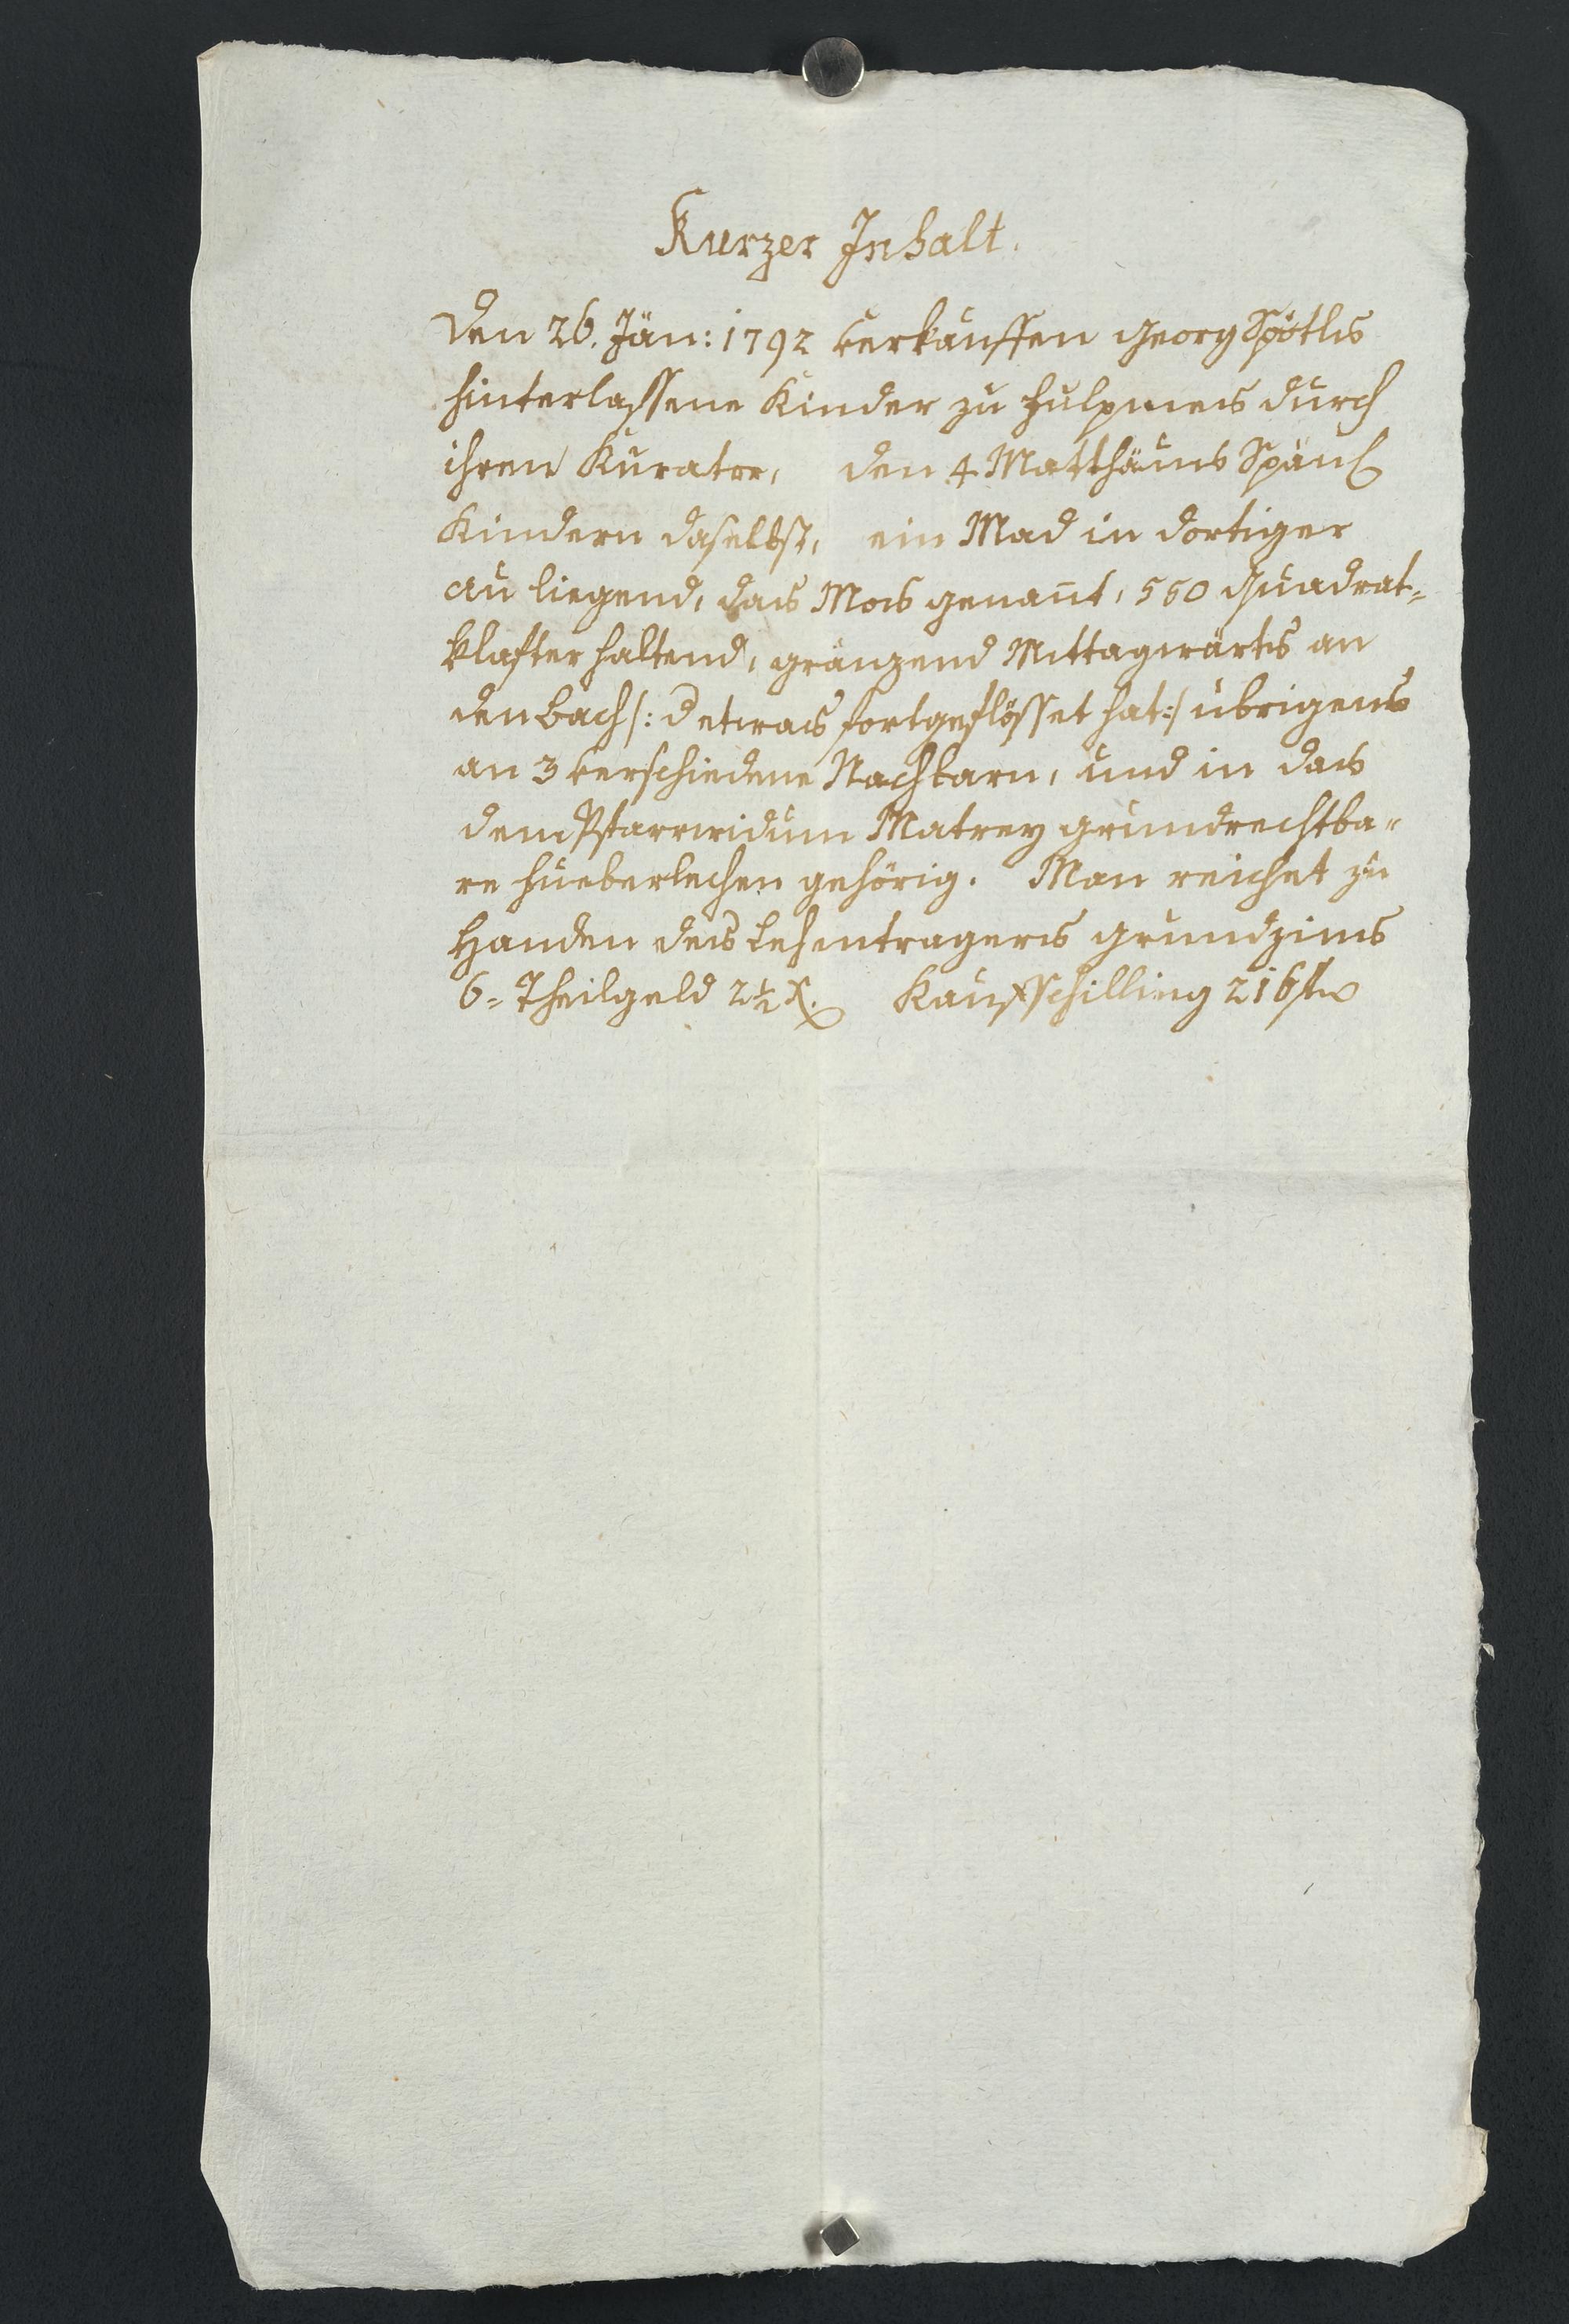 Kurzer Inhalt.
Den 26. Jän: 1792 verkäuffen Georg Spötls
hinterlassene Kinder zu Fulpmes durch
ihren Kurator, den 4 Matthäus Spän
Kindern daselbst, ein Mad in dortiger
Au liegend, das Mos genañt, 550 Quadrat=
klafter haltend, gränzend Mittagwärts an
den Bach /: d etwas fortgeflösset hat :/ übrigens
an 3 verschiedene Nachbarn, und in das
dem Pfarrwidum Matrey grundrechtba=
re Hueberlechen gehörig. Man reichet zu
Handen des Lehentragers Grundzins
6=Theilgeld 2½ x. Kaufschilling 216 f